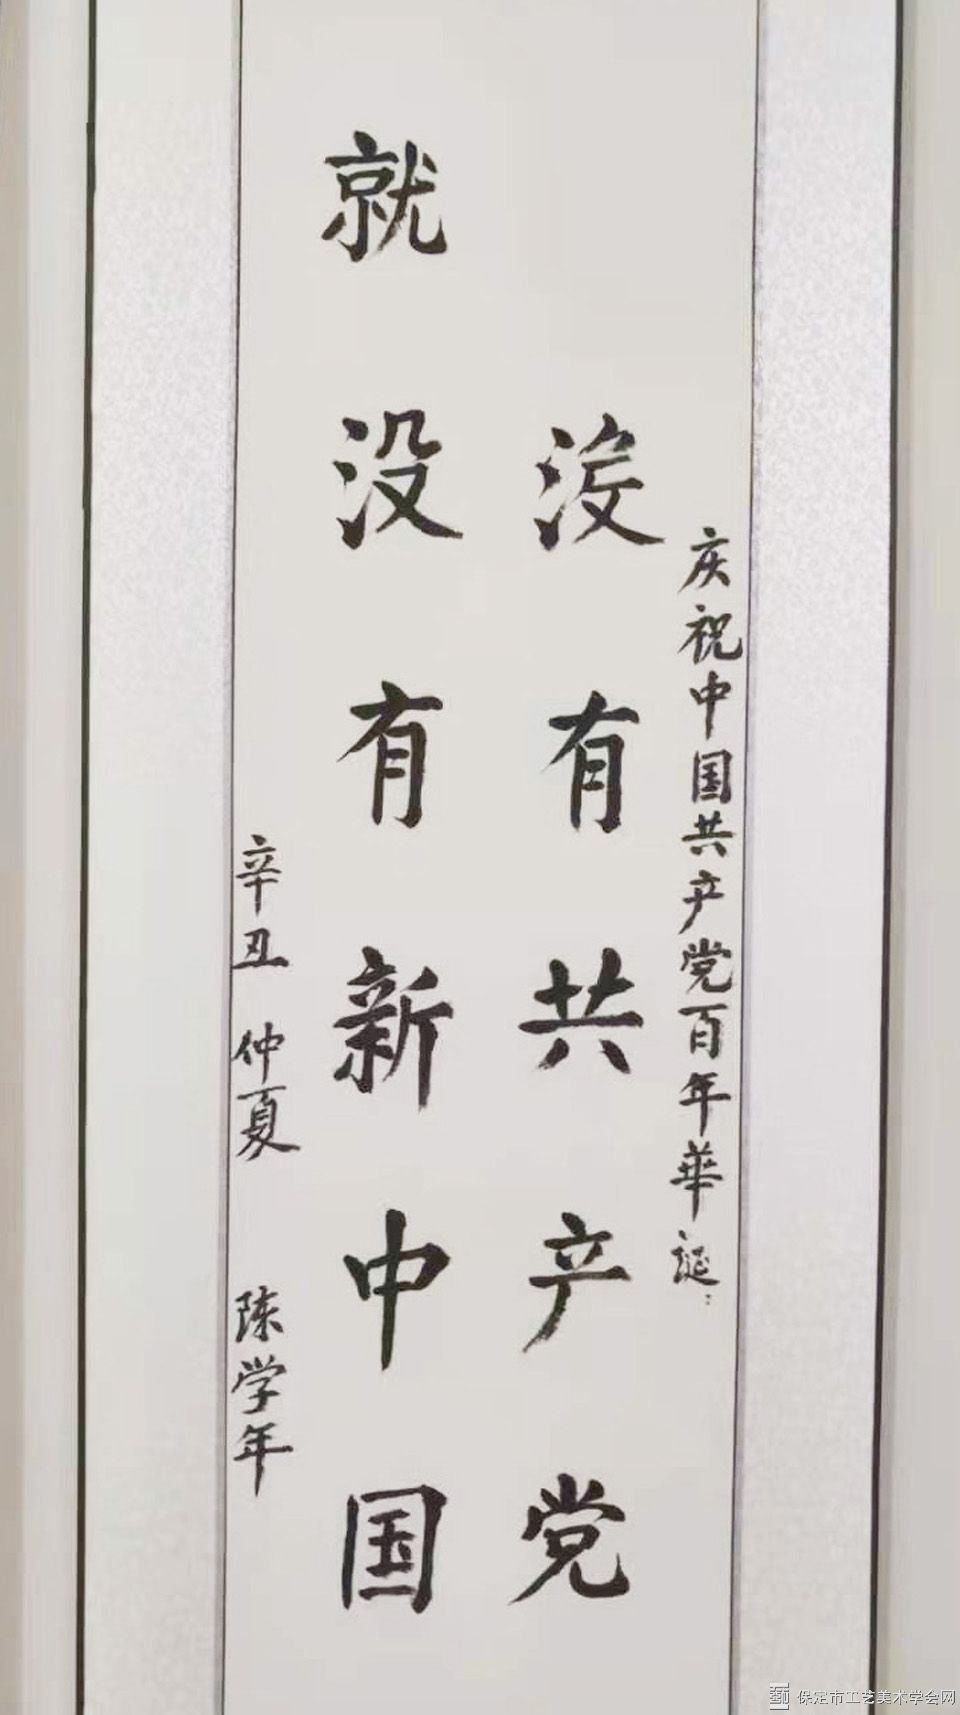 庆祝中国共产党百年華诞:
没有共产党
就没有新中国
辛丑 仲夏 陈学年
保定市工艺美术学会网